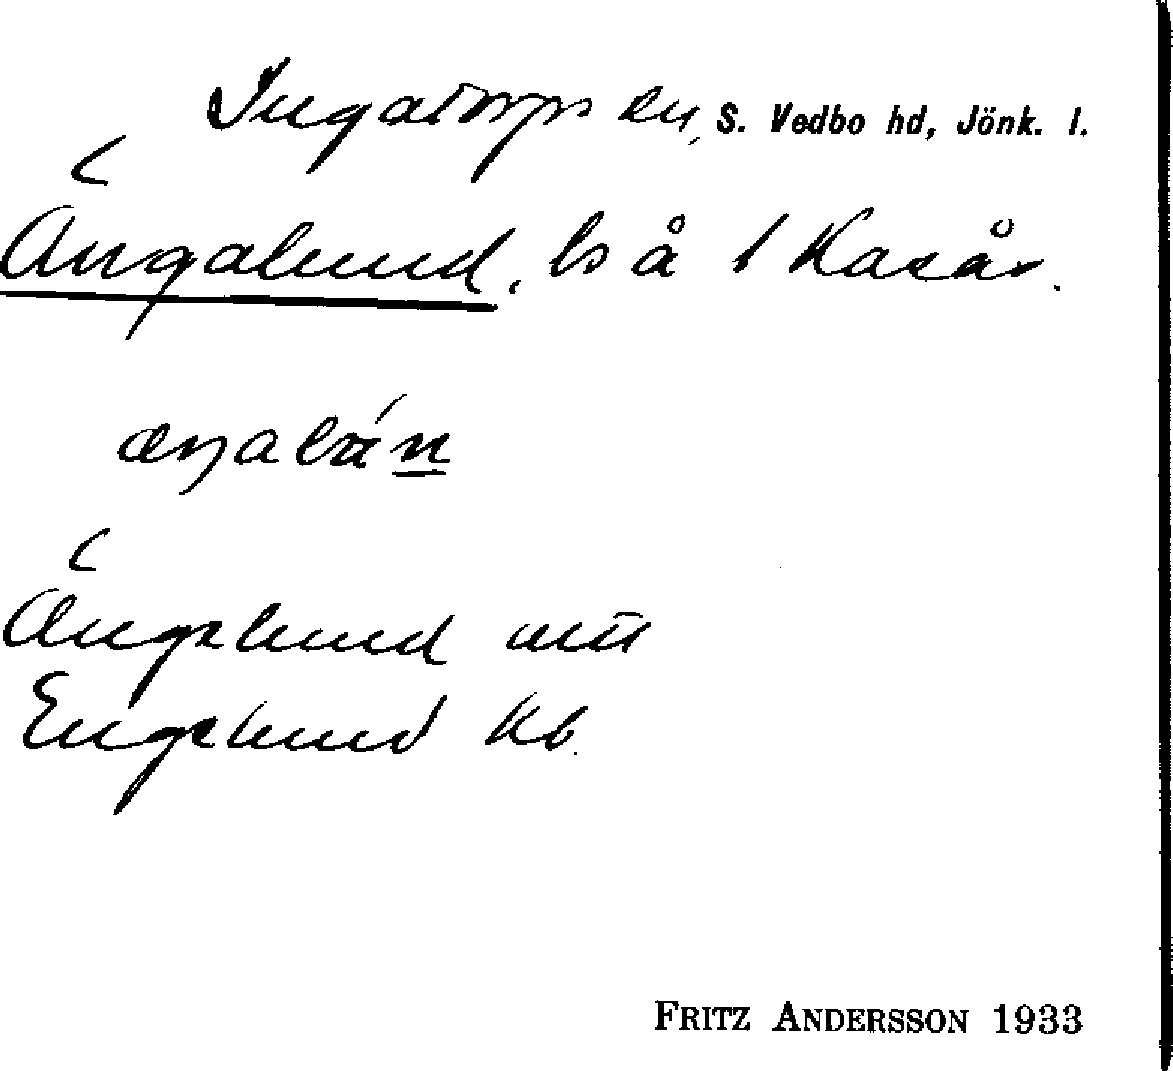 Ingatorps sn, S. Vedbo hd, Jönk. l.
Ängalund, ls å 1 Kasås.
Ängslund
Engslund Kb.
FRITZ ANDERSSON 1933